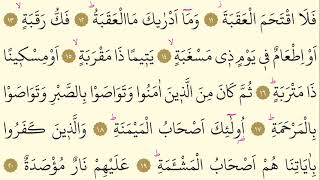 فَلَا اقْتَحَمَ الْعَقَبَةَ ﴿١١﴾ وَمَآ اَدْرٰيكَ مَاالْعَقَبَةُ ﴿١٢﴾ فَكُّ رَقَبَةٍ ﴿١٣﴾
اَوْاِطْعَامٌ فٖي يَوْمٍ ذٖي مَسْغَبَةٍ ﴿١٤﴾ يَتٖيمًا ذَا مَقْرَبَةٍ ﴿١٥﴾ اَوْمِسْكٖينًا
ذَا مَتْرَبَةٍ ﴿١٦﴾ ثُمَّ كَانَ مِنَ الَّذٖينَ اٰمَنُوا وَتَوَاصَوْا بِالصَّبْرِ وَتَوَاصَوْا
بِالْمَرْحَمَةِ ﴿١٧﴾ اُولٰٓئِكَ اَصْحَابُ الْمَيْمَنَةِ ﴿١٨﴾ وَالَّذٖينَ كَفَرُوا
بِاٰيَاتِنَا هُمْ اَصْحَابُ الْمَشْـَٔمَةِ ﴿١٩﴾ عَلَيْهِمْ نَارٌ مُؤْصَدَةٌ ﴿٢٠﴾